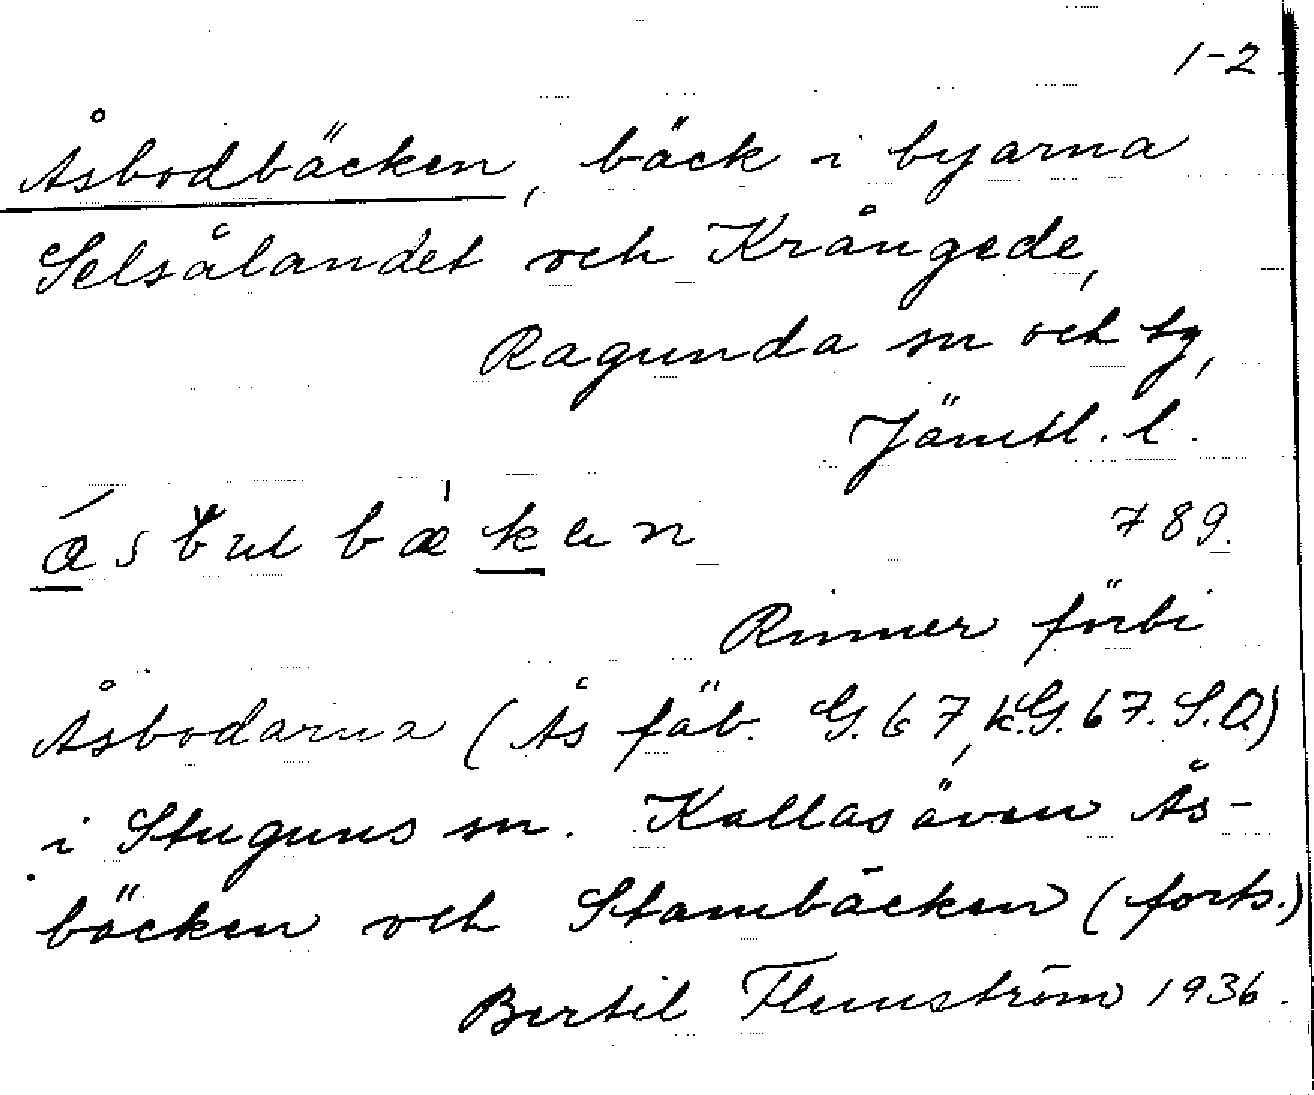 1-2
Åsbodbäcken, bäck i byarna
Selsålandet och Krångede,
Ragunda sn och tg,
Jämtl. l.
789.
Rinner förbi
Åsbodarna (Ås fäb. G. 67, k.G. 67. S.O)
i Stuguns sn. Kallas även Ås-
bäcken och Stambäcken (forts.)
Bertil Flemström 1936.